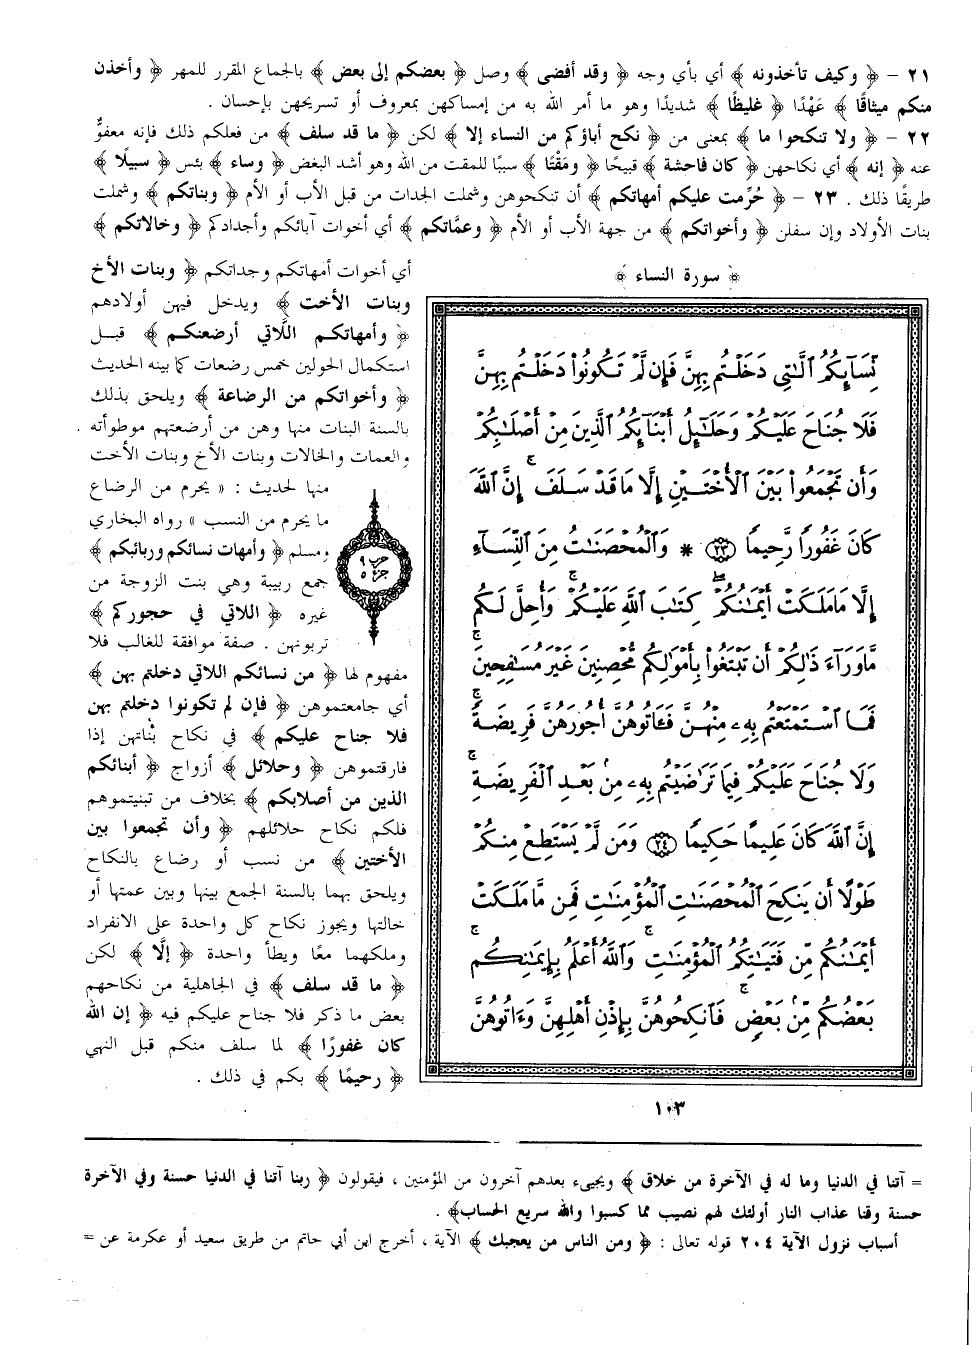 ٢١ – ﴿ وكيف تأخذونه ﴾ أي بأي وجه ﴿ وقد أفضى ﴾ وصل ﴿ بعضكم إلى بعض ﴾ بالجماع المقرر للمهر ﴿ وأخذن
منكم ميثاقًا ﴾ عَهْدًا ﴿ غليظًا ﴾ شديدًا وهو ما أمر الله به من إمساكهن بمعروف أو تسريحهن بإحسان .
٢٢ – ﴿ ولا تنكحوا ما ﴾ بمعنى من ﴿ نكح أباؤكم من النساء إلا ﴾ لكن ﴿ ما قد سلف ﴾ من فعلكم ذلك فإنه معفوٌّ
عنه ﴿ إنه ﴾ أي نكاحهن ﴿ كان فاحشة ﴾ قبيحًا ﴿ ومَقْتًا ﴾ سببًا للمقت من الله وهو أشد البغض ﴿ وساء ﴾ بئس ﴿ سبيلًا ﴾
طريقًا ذلك . ٢٣ – ﴿ حُرِّمت عليكم أمهاتكم ﴾ أن تنكحوهن وشملت الجدات من قبل الأب أو الأم ﴿ وبناتكم ﴾ وشملت
بنات الأولاد وإن سفلن ﴿ وأخواتكم ﴾ من جهة الأب أو الأم ﴿ وعمَّاتكم ﴾ أي أخوات آبائكم وأجدادكم ﴿ وخالاتكم ﴾
﴿ سورة النساء ﴾
نِّسَآئِكُمُ ٱلَّٰتِى دَخَلْتُم بِهِنَّ فَإِن لَّمْ تَكُونُوا۟ دَخَلْتُم بِهِنَّ
فَلَا جُنَاحَ عَلَيْكُمْ وَحَلَٰٓئِلُ أَبْنَآئِكُمُ ٱلَّذِينَ مِنْ أَصْلَٰبِكُمْ
وَأَن تَجْمَعُوا۟ بَيْنَ ٱلْأُخْتَيْنِ إِلَّا مَا قَدْ سَلَفَ ۚ إِنَّ ٱللَّهَ
كَانَ غَفُورًا رَّحِيمًا ﴿٢٣﴾ * وَٱلْمُحْصَنَٰتُ مِنَ ٱلنِّسَآءِ
إِلَّا مَا مَلَكَتْ أَيْمَٰنُكُمْ ۖ كِتَٰبَ ٱللَّهِ عَلَيْكُمْ ۚ وَأُحِلَّ لَكُم
مَّا وَرَآءَ ذَٰلِكُمْ أَن تَبْتَغُوا۟ بِأَمْوَٰلِكُم مُّحْصِنِينَ غَيْرَ مُسَٰفِحِينَ ۚ
فَمَا ٱسْتَمْتَعْتُم بِهِۦ مِنْهُنَّ فَـَٔاتُوهُنَّ أُجُورَهُنَّ فَرِيضَةً ۚ
وَلَا جُنَاحَ عَلَيْكُمْ فِيمَا تَرَٰضَيْتُم بِهِۦ مِنۢ بَعْدِ ٱلْفَرِيضَةِ ۚ
إِنَّ ٱللَّهَ كَانَ عَلِيمًا حَكِيمًا ﴿٢٤﴾ وَمَن لَّمْ يَسْتَطِعْ مِنكُمْ
طَوْلًا أَن يَنكِحَ ٱلْمُحْصَنَٰتِ ٱلْمُؤْمِنَٰتِ فَمِن مَّا مَلَكَتْ
أَيْمَٰنُكُم مِّن فَتَيَٰتِكُمُ ٱلْمُؤْمِنَٰتِ ۚ وَٱللَّهُ أَعْلَمُ بِإِيمَٰنِكُم ۚ
بَعْضُكُم مِّنۢ بَعْضٍ ۚ فَٱنكِحُوهُنَّ بِإِذْنِ أَهْلِهِنَّ وَءَاتُوهُنَّ
١٠٣
أي أخوات أمهاتكم وجداتكم ﴿ وبنات الأخ
وبنات الأخت ﴾ ويدخل فيهن أولادهم
﴿ وأمهاتكم اللَّاتي أرضعنكم ﴾ قبل
استكمال الحولين خمس رضعات كما بينه الحديث
﴿ وأخواتكم من الرضاعة ﴾ ويلحق بذلك
بالسنة البنات منها وهن من أرضعتهم موطوأته .
والعمات والخالات وبنات الأخ وبنات الأخت
منها لحديث : « يحرم من الرضاع
ما يحرم من النسب » رواه البخاري
ومسلم ﴿ وأمهات نسائكم وربائبكم ﴾
جمع ربيبة وهي بنت الزوجة من
غيره ﴿ اللاتي في حجوركم ﴾
تربونهن . صفة موافقة للغالب فلا
مفهوم لها ﴿ من نسائكم اللاتي دخلتم بهن ﴾
أي جامعتموهن ﴿ فإن لم تكونوا دخلتم بهن
فلا جناح عليكم ﴾ في نكاح بناتهن إذا
فارقتموهن ﴿ وحلائل ﴾ أزواج ﴿ أبنائكم
الذين من أصلابكم ﴾ بخلاف من تبنيتموهم
فلكم نكاح حلائلهم ﴿ وأن تجمعوا بين
الأختين ﴾ من نسب أو رضاع بالنكاح
ويلحق بهما بالسنة الجمع بينها وبين عمتها أو
خالتها ويجوز نكاح كل واحدة على الانفراد
وملكهما معًا ويطأ واحدة ﴿ إلَّا ﴾ لكن
﴿ ما قد سلف ﴾ في الجاهلية من نكاحهم
بعض ما ذكر فلا جناح عليكم فيه ﴿ إن الله
كان غفورًا ﴾ لما سلف منكم قبل النهي
﴿ رحيمًا ﴾ بكم في ذلك .
حزب ٩
جزء ٥
= آتنا في الدنيا وما له في الآخرة من خلاق ﴾ ويجيىء بعدهم آخرون من المؤمنين ، فيقولون ﴿ ربنا آتنا في الدنيا حسنة وفي الآخرة
حسنة وقنا عذاب النار أولئك لهم نصيب مما كسبوا والله سريع الحساب﴾ .
أسباب نزول الآية ٢٠٤ قوله تعالى : ﴿ ومن الناس من يعجبك ﴾ الآية ، أخرج ابن أبي حاتم من طريق سعيد أو عكرمة عن =